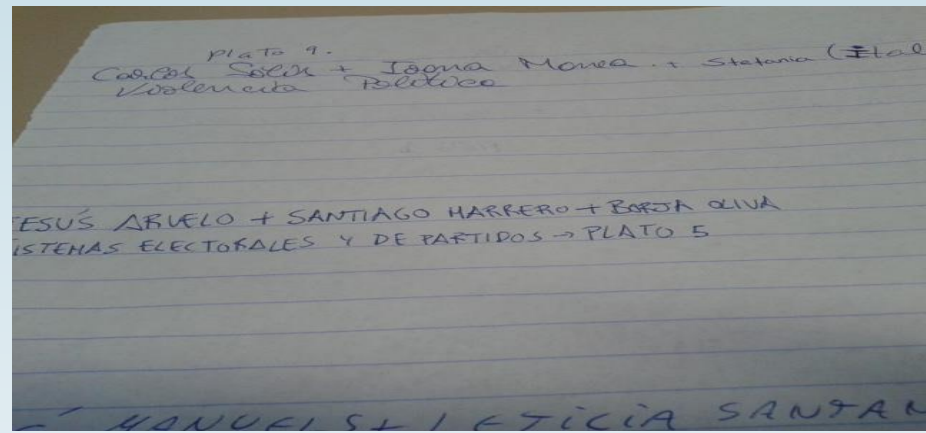 Plato 9.
Carlos Solix + Ioana Monea. + Stefania (Ital
Violencia Política
ESUS ARVELO + SANTIAGO MARRERO + BORJA OLIVA
ISTEMAS ELECTORALES Y DE PARTIDOS → PLATO 5
MANUEL S + LETICIA SANTAN